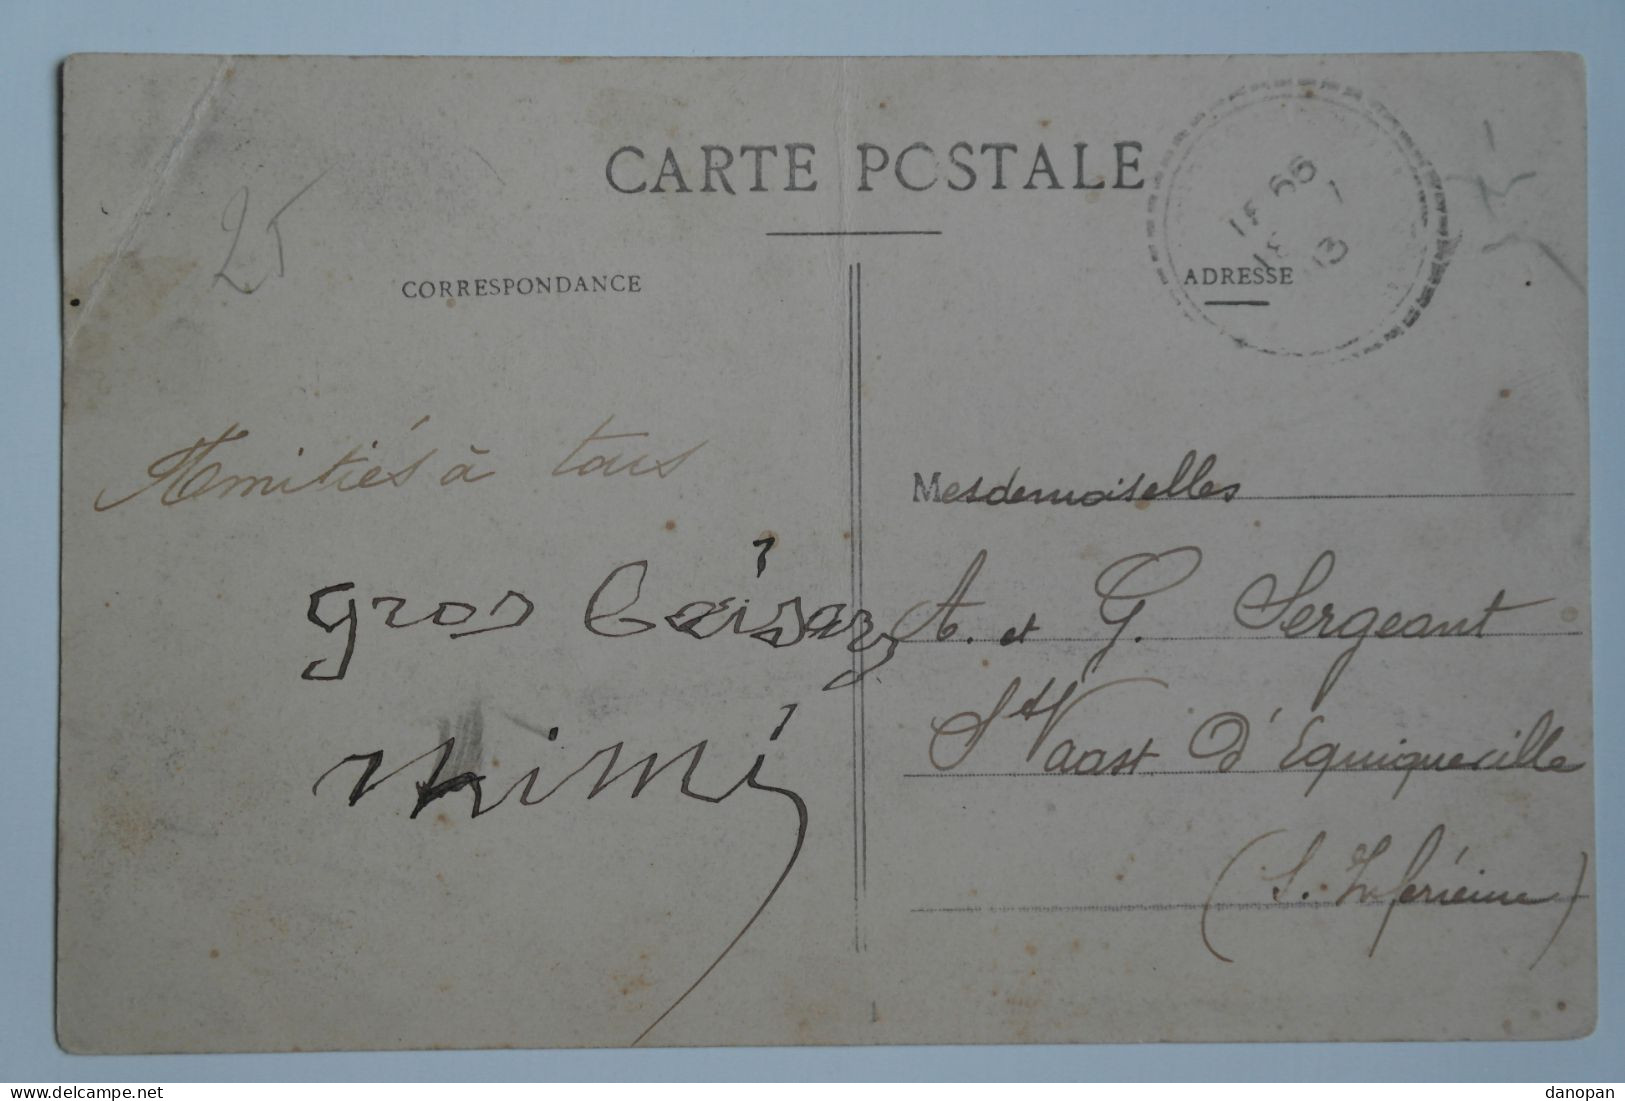 CARTE POSTALE
25
CORRESPONDANCE
ADRESSE
13
Amitiés à tous
gros baiser
mimi
Mesdemoiselles
A. et G. Sergeant
St Vaast d'Equiqueville
(S. Inférieure)
https://www.delcampe.net
danopan